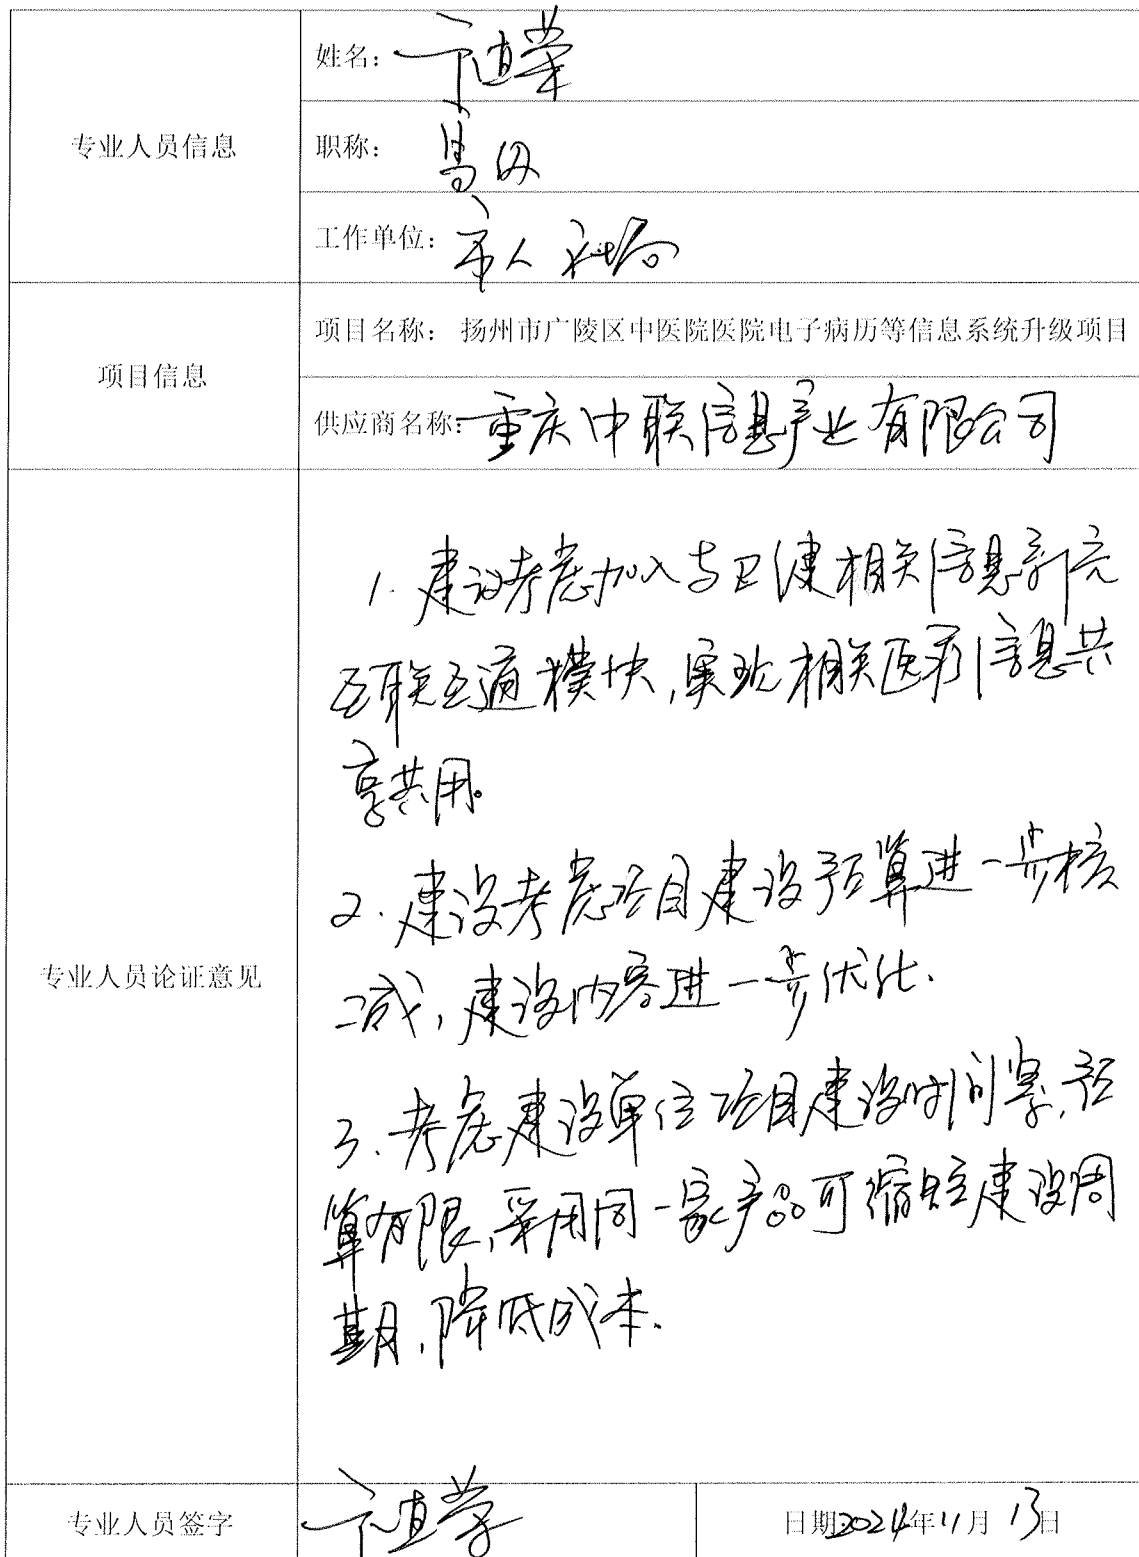 姓名：卞直荣
专业人员信息
职称：高级
工作单位：市人社局
项目信息
项目名称： 扬州市广陵区中医院医院电子病历等信息系统升级项目
供应商名称：重庆中联信息产业有限公司
专业人员论证意见
1. 建议考虑加入与卫健相关信息系统
互联互通模块，实现相关医疗信息共
享共用。
2. 建设考虑项目建设预算进一步核
减，建设内容进一步优化.
3. 考虑建设单位项目建设时间紧，预
算有限，采用同一家产品可缩短建设周
期，降低成本.
专业人员签字
卞直荣
日期2024年11月13日